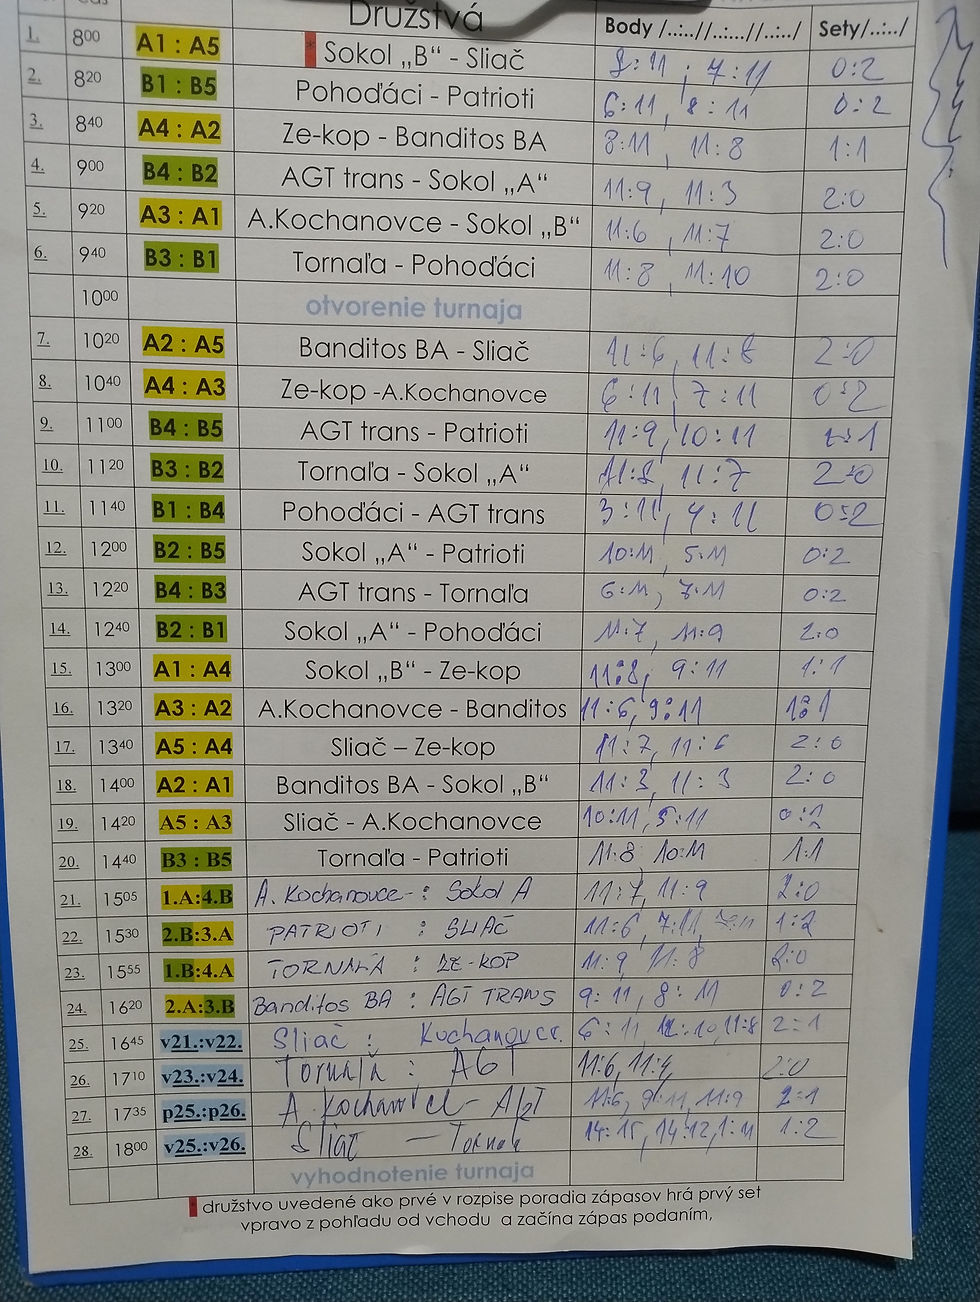 Družstvá Body /..:..//..:...//..:../ Sety/..:../
1. 8⁰⁰ A1 : A5 * Sokol „B“ - Sliač 8:11 ; 7:11 0:2
2. 8²⁰ B1 : B5 Pohoďáci - Patrioti 6:11, 8:11 0:2
3. 8⁴⁰ A4 : A2 Ze-kop - Banditos BA 8:11, 11:8 1:1
4. 9⁰⁰ B4 : B2 AGT trans - Sokol „A“ 11:9, 11:3 2:0
5. 9²⁰ A3 : A1 A.Kochanovce - Sokol „B“ 11:6, 11:7 2:0
6. 9⁴⁰ B3 : B1 Tornaľa - Pohoďáci 11:8, 11:10 2:0
10⁰⁰ otvorenie turnaja
7. 10²⁰ A2 : A5 Banditos BA - Sliač 11:6, 11:8 2:0
8. 10⁴⁰ A4 : A3 Ze-kop -A.Kochanovce 6:11, 7:11 0:2
9. 11⁰⁰ B4 : B5 AGT trans - Patrioti 11:9, 10:11 1:1
10. 11²⁰ B3 : B2 Tornaľa - Sokol „A“ 11:8, 11:7 2:0
11. 11⁴⁰ B1 : B4 Pohoďáci - AGT trans 3:11, 4:11 0:2
12. 12⁰⁰ B2 : B5 Sokol „A“ - Patrioti 10:11, 5:11 0:2
13. 12²⁰ B4 : B3 AGT trans - Tornaľa 6:11, 7:11 0:2
14. 12⁴⁰ B2 : B1 Sokol „A“ - Pohoďáci 11:7, 11:9 2:0
15. 13⁰⁰ A1 : A4 Sokol „B“ - Ze-kop 11:8, 9:11 1:1
16. 13²⁰ A3 : A2 A.Kochanovce - Banditos 11:6, 9:11 1:1
17. 13⁴⁰ A5 : A4 Sliač – Ze-kop 11:7, 11:6 2:0
18. 14⁰⁰ A2 : A1 Banditos BA - Sokol „B“ 11:3, 11:3 2:0
19. 14²⁰ A5 : A3 Sliač - A.Kochanovce 10:11, 5:11 0:2
20. 14⁴⁰ B3 : B5 Tornaľa - Patrioti 11:8 10:11 1:1
21. 15⁰⁵ 1.A:4.B A. Kochanovce - : Sokol A 11:7, 11:9 2:0
22. 15³⁰ 2.B:3.A PATRIOTI : SLIAČ 11:6, 7:11, 1:2
23. 15⁵⁵ 1.B:4.A TORNAĽA : ZE-KOP 11:9, 11:8 2:0
24. 16²⁰ 2.A:3.B Banditos BA : AGT TRANS 9:11, 8:11 0:2
25. 16⁴⁵ v21.:v22. Sliač : Kochanovce. 6:11, 10, 11:8 2=1
26. 17¹⁰ v23.:v24. Tornaľa : AGT 11:6, 11:4, 2:0
27. 17³⁵ p25.:p26. A. Kochanovce - AGT 11:6, 9:11, 11:9 2=1
28. 18⁰⁰ v25.:v26. Sliač — Tornaľa 14:15, 14:12, 1:2
vyhodnotenie turnaja
* družstvo uvedené ako prvé v rozpise poradia zápasov hrá prvý set
vpravo z pohľadu od vchodu a začína zápas podaním,